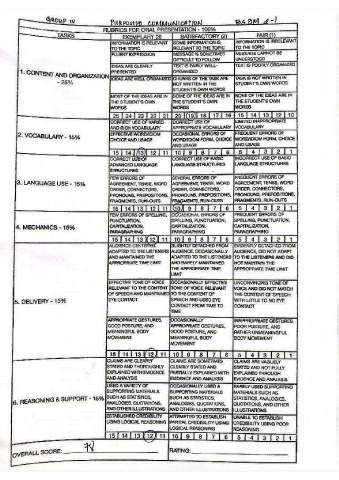 GROUP IV PURPOSIVE COMMUNICATION BSBM 2-1
RUBRICS FOR ORAL PRESENTATION - 100%
TASKS EXEMPLARY (3) SATISFACTORY (2) FAIR (1)
1. CONTENT AND ORGANIZATION - 25%
INFORMATION IS RELEVANT TO THE TOPIC
SOME INFORMATION IS RELEVANT TO THE TOPIC
INFORMATION IS IRRELEVANT TO THE TOPIC
FLUENT EXPRESSION
MESSAGE IS SOMETIMES DIFFICULT TO FOLLOW
MESSAGE CANNOT BE UNDERSTOOD
IDEAS ARE CLEARLY PRESENTED
TEXT IS FAIRLY WELL-ORGANIZED
TEXT IS POORLY ORGANIZED
IDEAS ARE WELL ORGANIZED
CHUNKS OF THE TASK ARE NOT WRITTEN IN THE STUDENT'S OWN WORDS
TASK IS NOT WRITTEN IN STUDENT'S OWN WORDS
MOST OF THE IDEAS ARE IN THE STUDENT'S OWN WORDS
SOME OF THE IDEAS ARE IN THE STUDENT'S OWN WORDS
NONE OF THE IDEAS ARE IN THE STUDENT'S OWN WORDS
25 24 23 22 21 20 19 18 17 16 15 14 13 12 10
2. VOCABULARY - 15%
CORRECT USE OF VARIED AND RICH VOCABULARY
CORRECT USE OF APPROPRIATE VOCABULARY
LIMITED INAPPROPRIATE VOCABULARY
EFFECTIVE WORD/IDIOM CHOICE AND USAGE
OCCASIONAL ERRORS OF WORD/IDIOM FORM, CHOICE AND USAGE
FREQUENT ERRORS OF WORD/IDIOM FORM, CHOICE AND USAGE
15 14 13 12 11 10 9 8 7 6 5 4 3 2 1
3. LANGUAGE USE - 15%
CORRECT USE OF ADVANCED LANGUAGE STRUCTURES
CORRECT USE OF BASIC LANGUAGE STRUCTURES
INCORRECT USE OF BASIC LANGUAGE STRUCTURES
FEW ERRORS OF AGREEMENT, TENSE, WORD ORDER, CONNECTORS, PRONOUNS, PREPOSITIONS, FRAGMENTS, RUN-OUTS
SEVERAL ERRORS OF AGREEMENT, TENSE, WORD ORDER, CONNECTORS, PRONOUNS, PREPOSITIONS, FRAGMENTS, RUN-OUTS
FREQUENT ERRORS OF AGREEMENT, TENSE, WORD ORDER, CONNECTORS, PRONOUNS, PREPOSITIONS, FRAGMENTS, RUN-OUTS
15 14 13 12 11 10 9 8 7 6 5 4 3 2 1
4. MECHANICS - 15%
FEW ERRORS OF SPELLING, PUNCTUATION, CAPITALIZATION, PARAGRAPHING
OCCASIONAL ERRORS OF SPELLING, PUNCTUATION, CAPITALIZATION, PARAGRAPHING
FREQUENT ERRORS OF SPELLING, PUNCTUATION, CAPITALIZATION, PARAGRAPHING
15 14 13 12 11 10 9 8 7 6 5 4 3 2 1
5. DELIVERY - 15%
ADAPTED TO THE LISTENERS AND MAINTAINED THE APPROPRIATE TIME LIMIT
SLIGHTLY DETACHED FROM AUDIENCE, OCCASIONALLY ADAPTED TO THE LISTENERS AND RARELY MAINTAINED THE APPROPRIATE TIME LIMIT
DETACHED FROM AUDIENCE, DID NOT ADAPT TO THE LISTENERS AND DID NOT MAINTAIN THE APPROPRIATE TIME LIMIT
EFFECTIVE TONE OF VOICE RELEVANT TO THE CONTENT OF SPEECH AND MAINTAINED EYE CONTACT
OCCASIONALLY EFFECTIVE TONE OF VOICE RELEVANT TO THE CONTENT OF SPEECH AND USED EYE CONTACT FROM TIME TO TIME
UNCONVINCING TONE OF VOICE AND DID NOT MATCH THE CONTENT OF SPEECH WITH LITTLE TO NO EYE CONTACT
APPROPRIATE GESTURES, GOOD POSTURE, AND MEANINGFUL BODY MOVEMENT
OCCASIONALLY APPROPRIATE GESTURES, GOOD POSTURE, AND MEANINGFUL BODY MOVEMENT
INAPPROPRIATE GESTURES, POOR POSTURE, AND RATHER UNMEANINGFUL BODY MOVEMENT
15 14 13 12 11 10 9 8 7 6 5 4 3 2 1
6. REASONING & SUPPORT - 15%
CLAIMS ARE CLEARLY STATED AND THOROUGHLY EXPLAINED WITH EVIDENCE AND ANALYSIS
CLAIMS ARE SOMETIMES CLEARLY STATED AND PARTIALLY EXPLAINED WITH EVIDENCE AND ANALYSIS
CLAIMS ARE VAGUELY STATED AND NOT FULLY EXPLAINED THROUGH EVIDENCE AND ANALYSIS
USED A VARIETY OF SUPPORTING MATERIALS SUCH AS STATISTICS, ANALOGIES, QUOTATIONS, AND OTHER ILLUSTRATIONS
OCCASIONALLY USED A SUPPORTING MATERIALS SUCH AS STATISTICS, ANALOGIES, QUOTATIONS, AND OTHER ILLUSTRATIONS
RARELY USED SUPPORTING MATERIALS SUCH AS STATISTICS, ANALOGIES, QUOTATIONS, AND OTHER ILLUSTRATIONS
ESTABLISHED CREDIBILITY USING LOGICAL REASONING
ATTEMPTED TO ESTABLISH PARTIAL CREDIBILITY USING LOGICAL REASONING
UNABLE TO ESTABLISH CREDIBILITY USING POOR REASONING
15 14 13 12 11 10 9 8 7 6 5 4 3 2 1
OVERALL SCORE: 78 RATING: